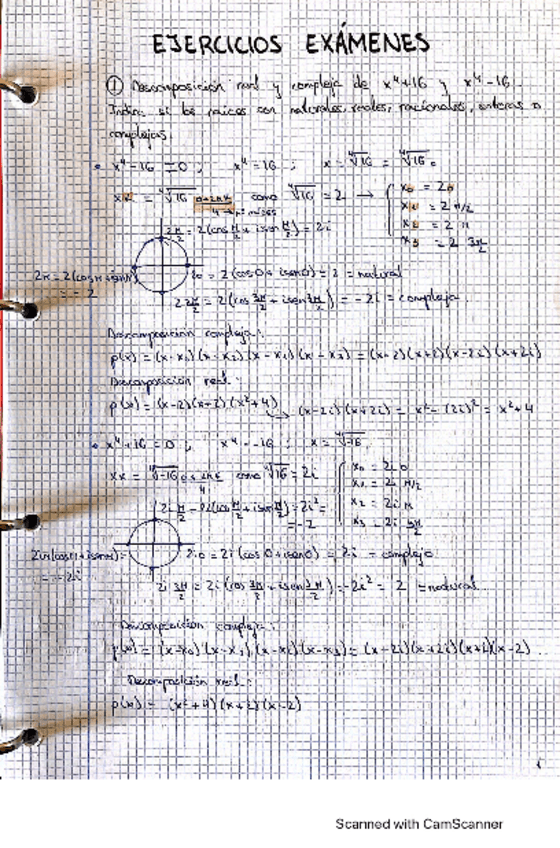 EJERCICIOS EXÁMENES
① Descomposición real y compleja de x⁴+16 y x⁴-16.
Indica si las raíces son naturales, reales, racionales, enteras o
complejas.
• x⁴-16 = 0 ; x⁴ = 16 ; x = ⁴√16 = ⁴√16₀
como ⁴√16 = 2 →
x₀ = 2₀
x₁ = 2 π/2
x₂ = 2 π
x₃ = 2 3π/2
2 π/2 = 2(cos π/2 + isen π/2) = 2i
2π = 2(cosπ+isenπ)
= -2
2₀ = 2(cos0 + isen0) = 2 = natural
2 3π/2 = 2(cos 3π/2 + isen 3π/2) = -2i = compleja
Descomposición compleja:
p(x) = (x-x₀)(x-x₂)(x-x₁)(x-x₃) = (x-2)(x+2)(x-2i)(x+2i)
Descomposición real:
p(x) = (x-2)(x+2)(x²+4)
(x-2i)(x+2i) = x²-(2i)² = x²+4
• x⁴+16 = 0 ; x⁴ = -16 ; x = ⁴√-16
como ⁴√-16 = 2i
x₀ = 2i 0
x₁ = 2i π/2
x₂ = 2i π
x₃ = 2i 3π/2
2i π/2 = 2i(cos π/2 + isen π/2) = 2i² =
= -2
2iπ(cosπ+isenπ) =
= -2i
2i₀ = 2i (cos 0 + isen0) = 2i = complejo
2i 3π/2 = 2i (cos 3π/2 + isen 3π/2) = -2i² = 2 = natural
Descomposición compleja:
p(x) = (x-x₀)(x-x₂)(x-x₁)(x-x₃) = (x-2i)(x+2i)(x+2)(x-2)
Descomposición real:
p(x) = (x²+4)(x+2)(x-2)
Scanned with CamScanner